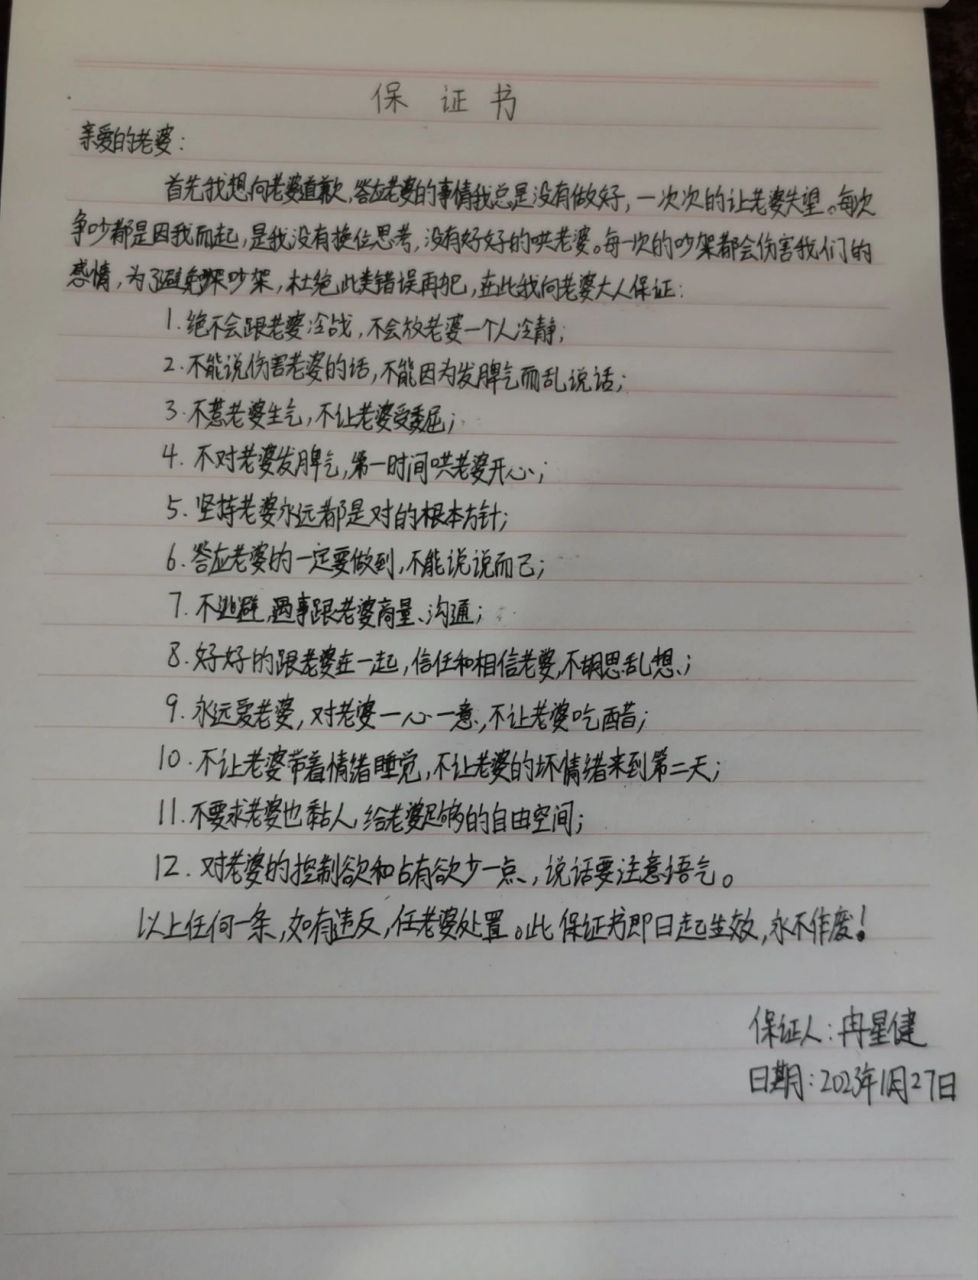 保 证 书
亲爱的老婆：
首先我想向老婆道歉，答应老婆的事情我总是没有做好，一次次的让老婆失望。每次
争吵都是因我而起，是我没有换位思考，没有好好的哄老婆。每一次的吵架都会伤害我们的
感情，为了避免吵架，杜绝此类错误再犯，在此我向老婆大人保证：
1.绝不会跟老婆冷战，不会放老婆一个人冷静；
2.不能说伤害老婆的话，不能因为发脾气而乱说话；
3.不惹老婆生气，不让老婆受委屈；
4.不对老婆发脾气，第一时间哄老婆开心；
5.坚持老婆永远都是对的根本方针；
6.答应老婆的一定要做到，不能说说而已；
7.不逃避，遇事跟老婆商量、沟通；
8.好好的跟老婆在一起，信任和相信老婆，不胡思乱想；
9.永远爱老婆，对老婆一心一意，不让老婆吃醋；
10.不让老婆带着情绪睡觉，不让老婆的坏情绪来到第二天；
11.不要求老婆也黏人，给老婆足够的自由空间；
12.对老婆的控制欲和占有欲少一点，说话要注意语气。
以上任何一条，如有违反，任老婆处置。此保证书即日起生效，永不作废！
保证人：冉星健
日期：2023年1月27日